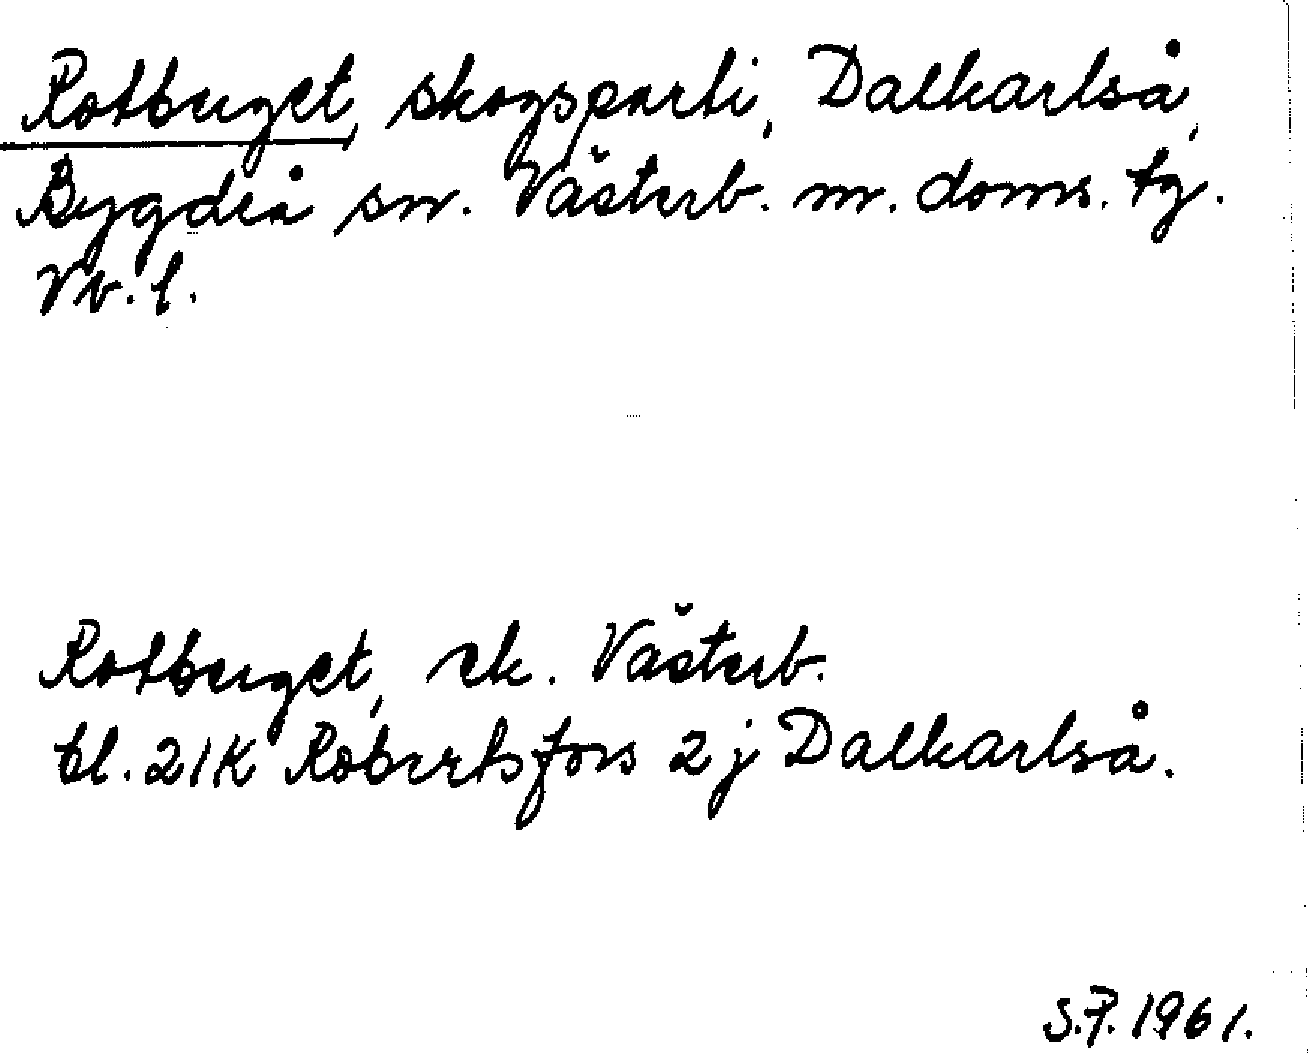 Rotberget, skogsparti, Dalkarlså,
Bygdeå sn. Västerb. m. doms. tg.
Vb. l.
Rotberget, ek. Västerb.
bl. 21K Robertsfors 2j Dalkarlså.
S.F. 1961.